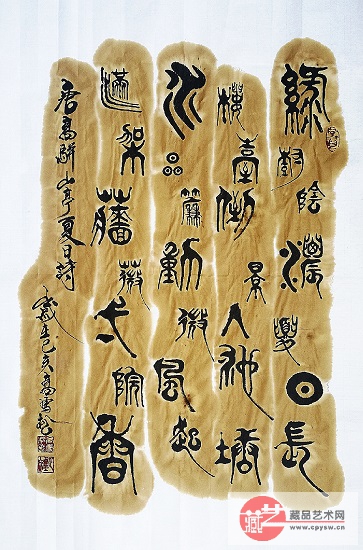 綠樹陰濃夏日長
樓臺倒景入池塘
水晶簾動微風起
滿架薔薇弌院香
唐高駢山亭夏日詩
己亥
藏艺
藏品艺术网
www.cpysw.cn